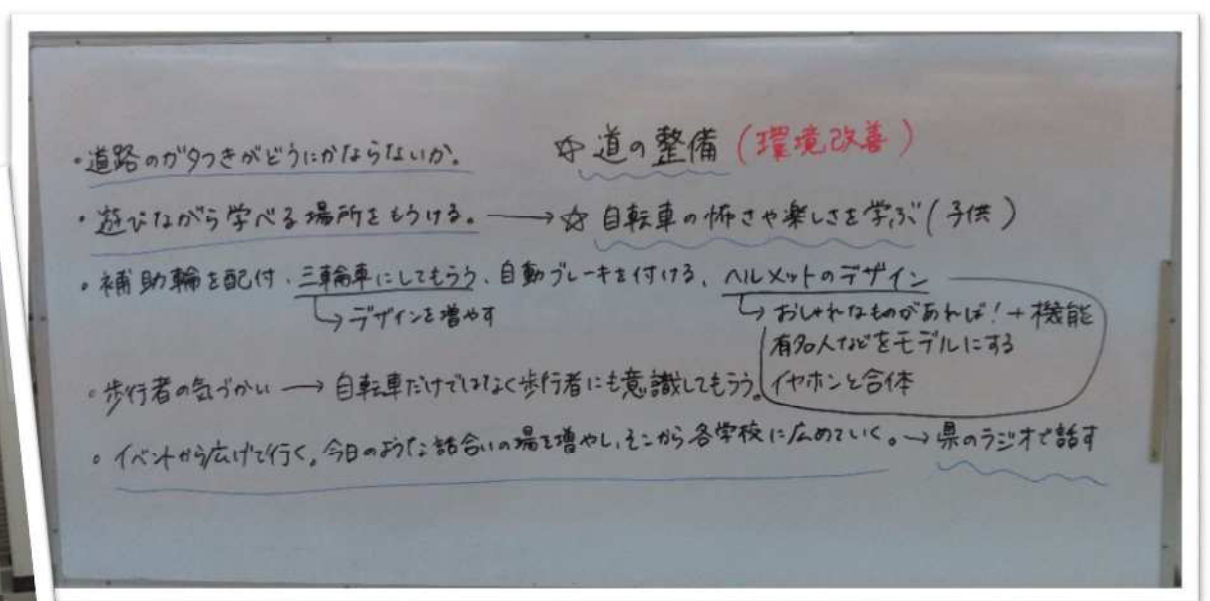 ・道路のガタつきがどうにかならないか。 ☆道の整備(環境改善)
・遊びながら学べる場所をもうける。→☆自転車の怖さや楽しさを学ぶ(子供)
・補助輪を配付、三輪車にしてもらう、自動ブレーキを付ける、ヘルメットのデザイン
↳デザインを増やす ↳おしゃれなものがあれば!+機能
有名人などをモデルにする
イヤホンと合体
・歩行者の気づかい→自転車だけではなく歩行者にも意識してもらう。
・イベントから広げて行く。今日のような話合いの場を増やし、そこから各学校に広めていく。→県のラジオで話す